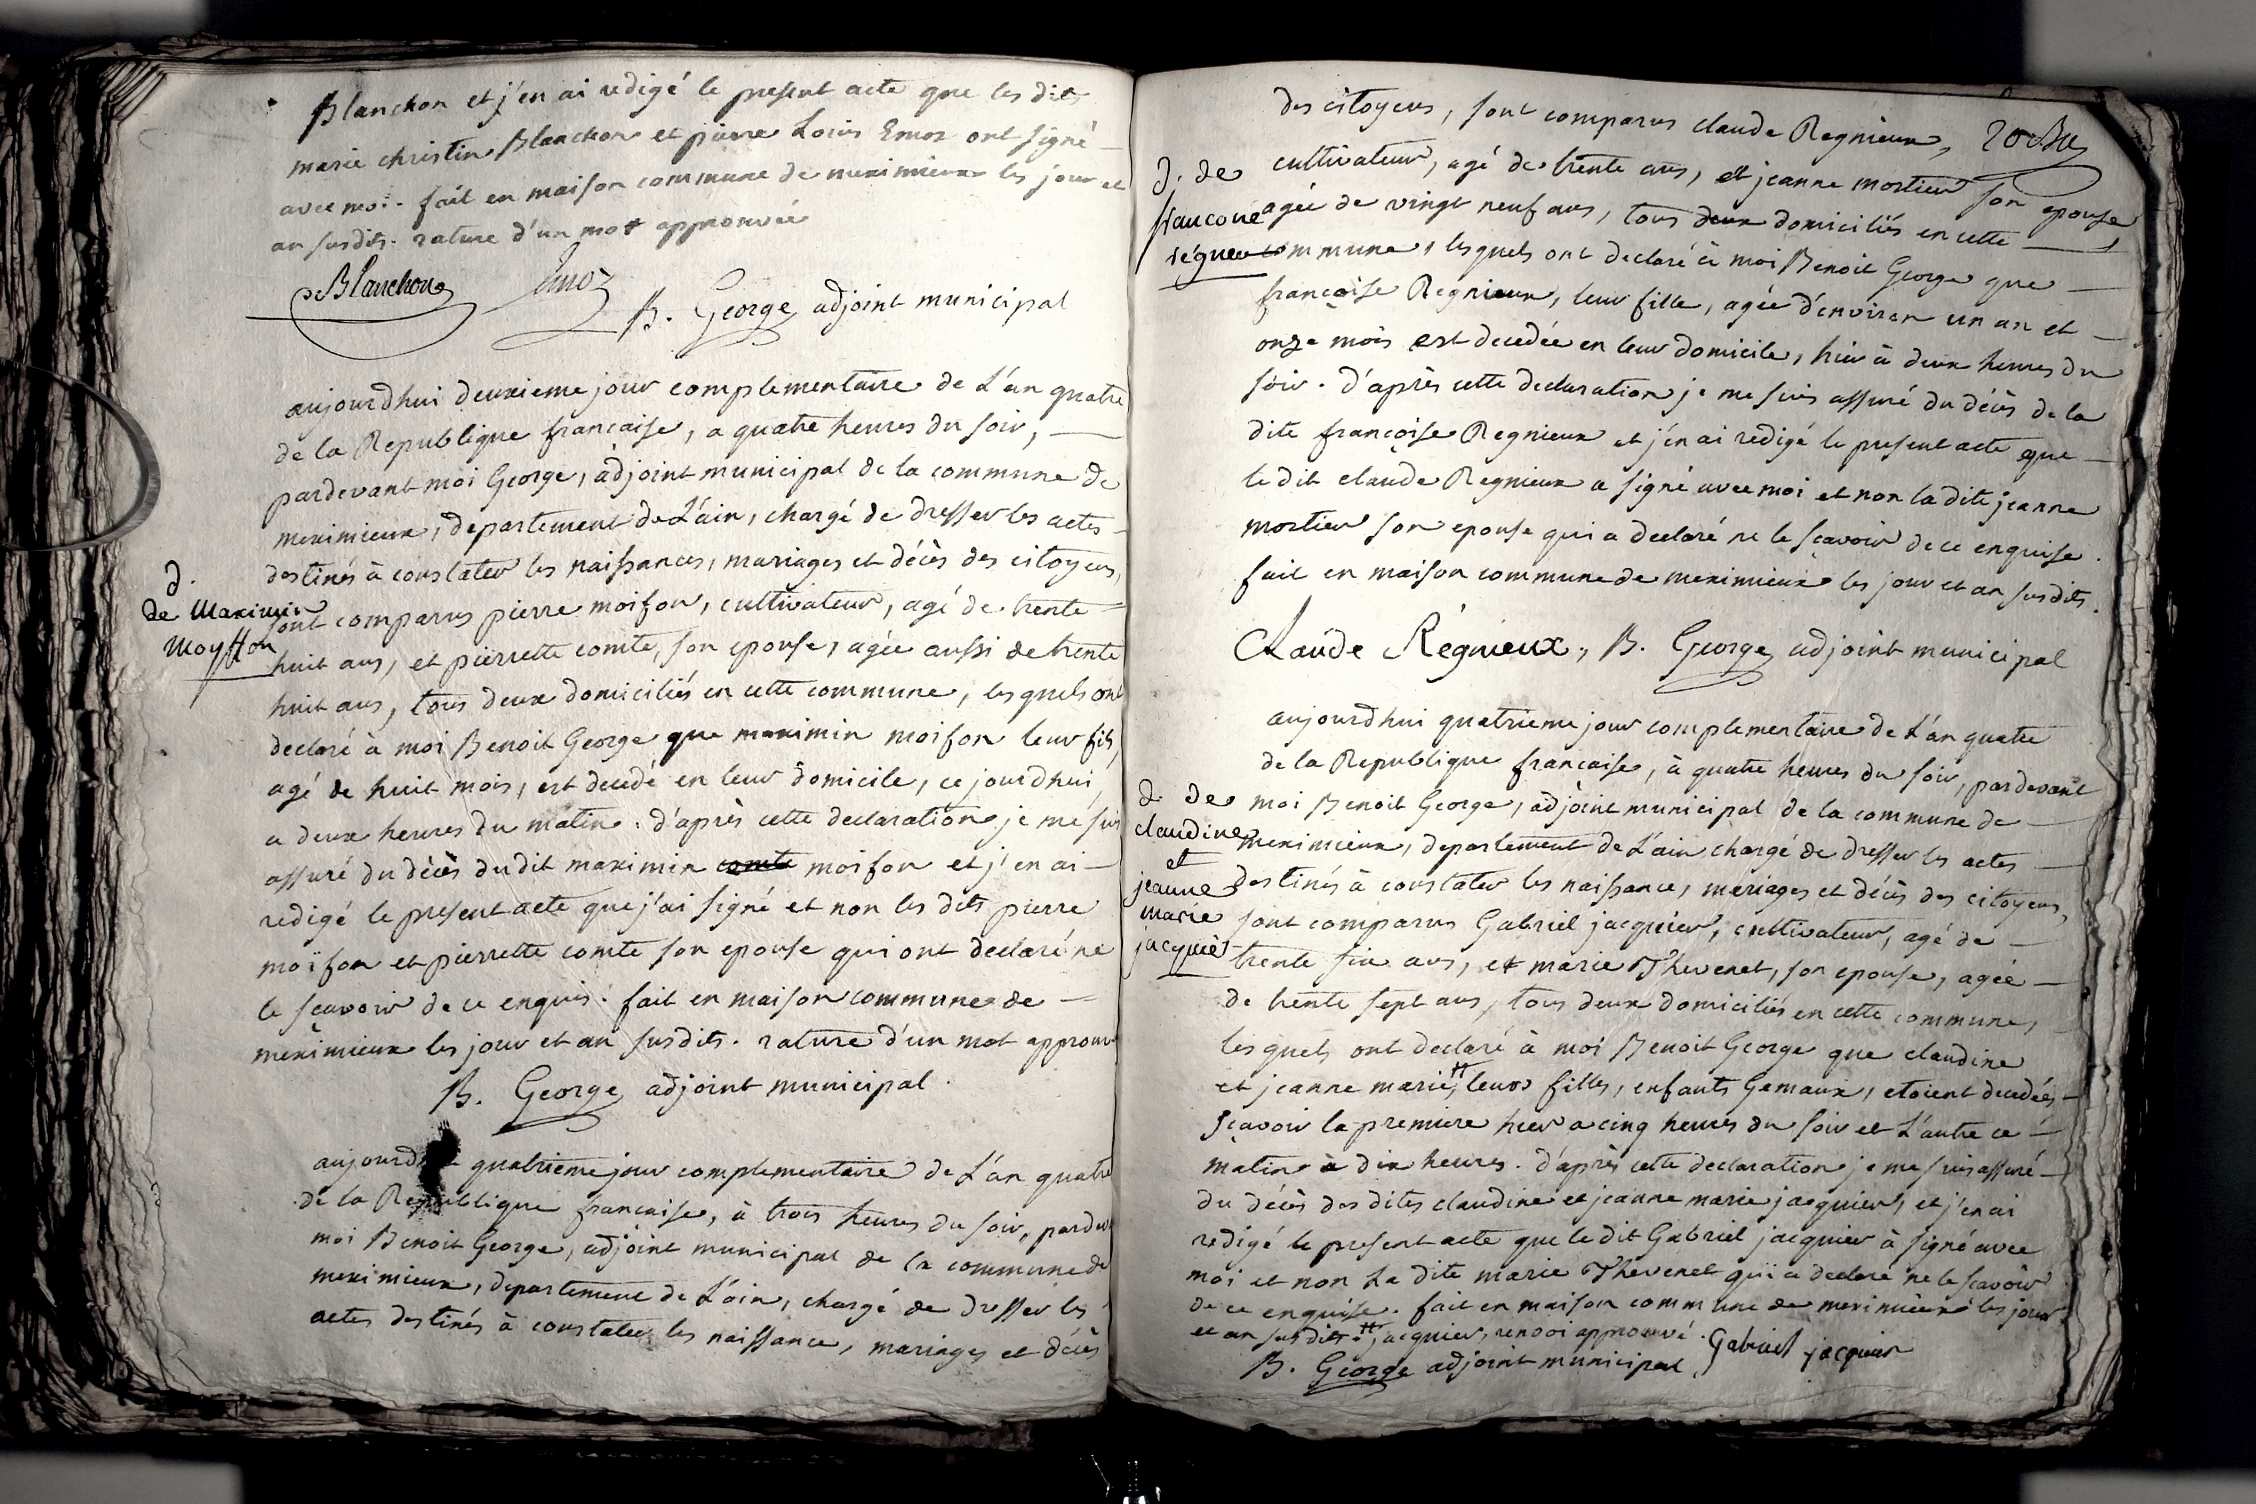 Blanchon et j'en ai redigé le present acte que les dits
marie christin Blanchon et pierre Louis Emoz ont signé
avec moi. fait en maison commune de meximieux les jour et
an susdits. rature d'un mot approuvée
Blanchon Emoz
B. George adjoint municipal
aujourdhui deuxieme jour complementaire de L'an quatre
de la Republique francaise, a quatre heures du soir,
pardevant moi George, adjoint municipal de la commune de
meximieux, departement de L'ain, chargé de dresser les actes
destinés à constater les naissances, mariages et décès des citoyens,
d.
de Maximin
Moysson
sont comparus pierre moifon, cultivateur, agé de trente
huit ans, et pierrette comte, son epouse, agée aussi de trente
huit ans, tous deux domiciliés en cette commune, les quels ont
declaré à moi Benoit George que maximin moifon leur fils,
agé de huit mois, est decedé en leur domicile, ce jourdhui,
a deux heures du matin. d'après cette declaration je me suis
assuré du décès du dit maximin comte moifon et j'en ai
redigé le present acte que j'ai signé et non les dits pierre
moïfon et pierrette comte son epouse qui ont declaré ne
le sçavoir de ce enquis. fait en maison commune de
meximieux les jour et an susdits. rature d'un mot approuvé
B. George adjoint municipal.
aujourdhui quatrieme jour complementaire de L'an quatre
de la Republique francaise, à trois heures du soir, pardev
moi Benoit George, adjoint municipal de la commune de
meximieux, departement de L'ain, chargé de dresser les
actes destinés à constater les naissance, mariages et décès
des citoyens, sont comparus claude Regnieux,
cultivateur, agé de trente ans, et jeanne mortier son epouse
d. de
francoise
régnieux
agée de vingt neuf ans, tous deux domiciliés en cette
commune, lesquels ont declaré à moi Benoit George que
françoise Regnieux, leur fille, agée d'environ un an et
onze mois est decedée en leur domicile, hier à deux heures du
soir. d'après cette declaration je me suis assuré du décès de la
dite françoise Regnieux et j'en ai redigé le present acte que
le dit claude Regnieux a signé avec moi et non la dite jeanne
mortier son epouse qui a declaré ne le sçavoir de ce enquise.
fait en maison commune de meximieux les jour et an susdits.
Claude Régnieux, B. George adjoint municipal
aujourdhui quatrieme jour complementaire de L'an quatre
de la Republique francaise, à quatre heures du soir, pardevant
d. de
claudine
et
jeanne
marie
jacquier
moi Benoit George, adjoint municipal de la commune de
meximieux, departement de L'ain chargé de dresser les actes
destinés à constater les naissance, mariages et décès des citoyens,
sont comparus Gabriel jacquier, cultivateur, agé de
trente six ans, et marie Thevenet, son epouse, agée
de trente sept ans, tous deux domiciliés en cette commune,
les quels ont declaré à moi Benoit George que claudine
et jeanne marie, # leurs filles, enfants Gemaux, etoient decedées
sçavoir la premiere hier a cinq heures du soir et L'autre ce
matin à dix heures. d'après cette declaration je me suis assuré
du décès des dites claudine et jeanne marie jacquier, et j'en ai
redigé le present acte que le dit Gabriel jacquier à signé avec
moi et non La dite marie Thevenet qui a declaré ne le scavoir
de ce enquise. fait en maison commune de meximieux les jour
et an susdits. # jacquier, renvoi approuvé. Gabriel jacquier
B. George adjoint municipal